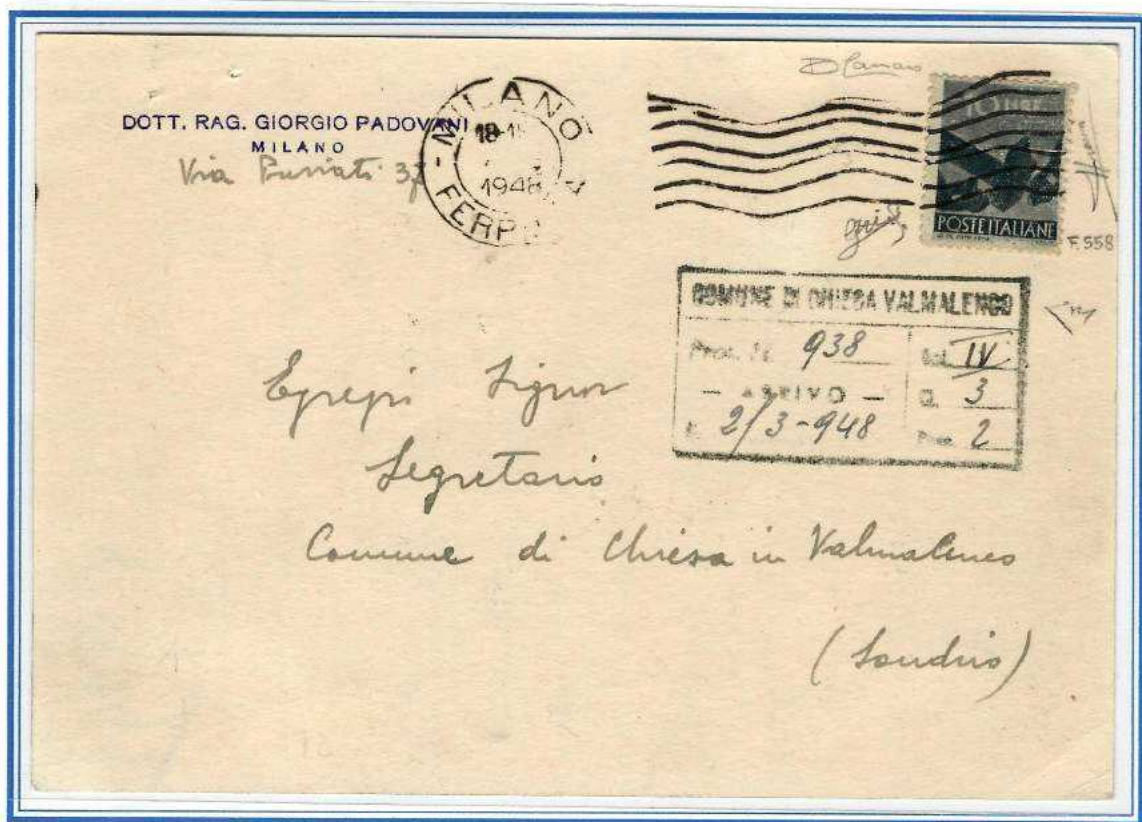 DOTT. RAG. GIORGIO PADOVANI
MILANO
Via
MILANO
18-
1948
10 LIRE
POSTE ITALIANE
F. 558
COMUNE DI CHIESA VALMALENCO
Prot. N. 938 IV
— ARRIVO — Cl. 3
2/3-948 2
Egregio Signor
Segretario
Comune di Chiesa in Valmalenco
(Sondrio)